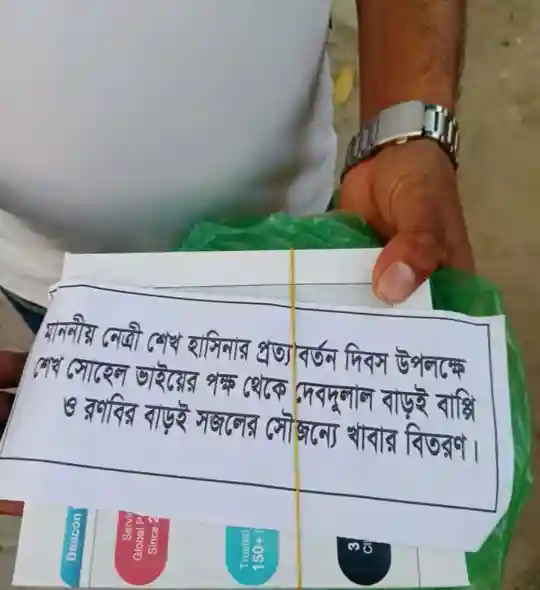 মাননীয় নেত্রী শেখ হাসিনার প্রত্যাবর্তন দিবস উপলক্ষে
শেখ সোহেল ভাইয়ের পক্ষ থেকে দেবদুলাল বাড়ই বাপ্পি
ও রণবির বাড়ই সজলের সৌজন্যে খাবার বিতরণ।
Beacon
Global P
Since 2
Trusted
150+
3